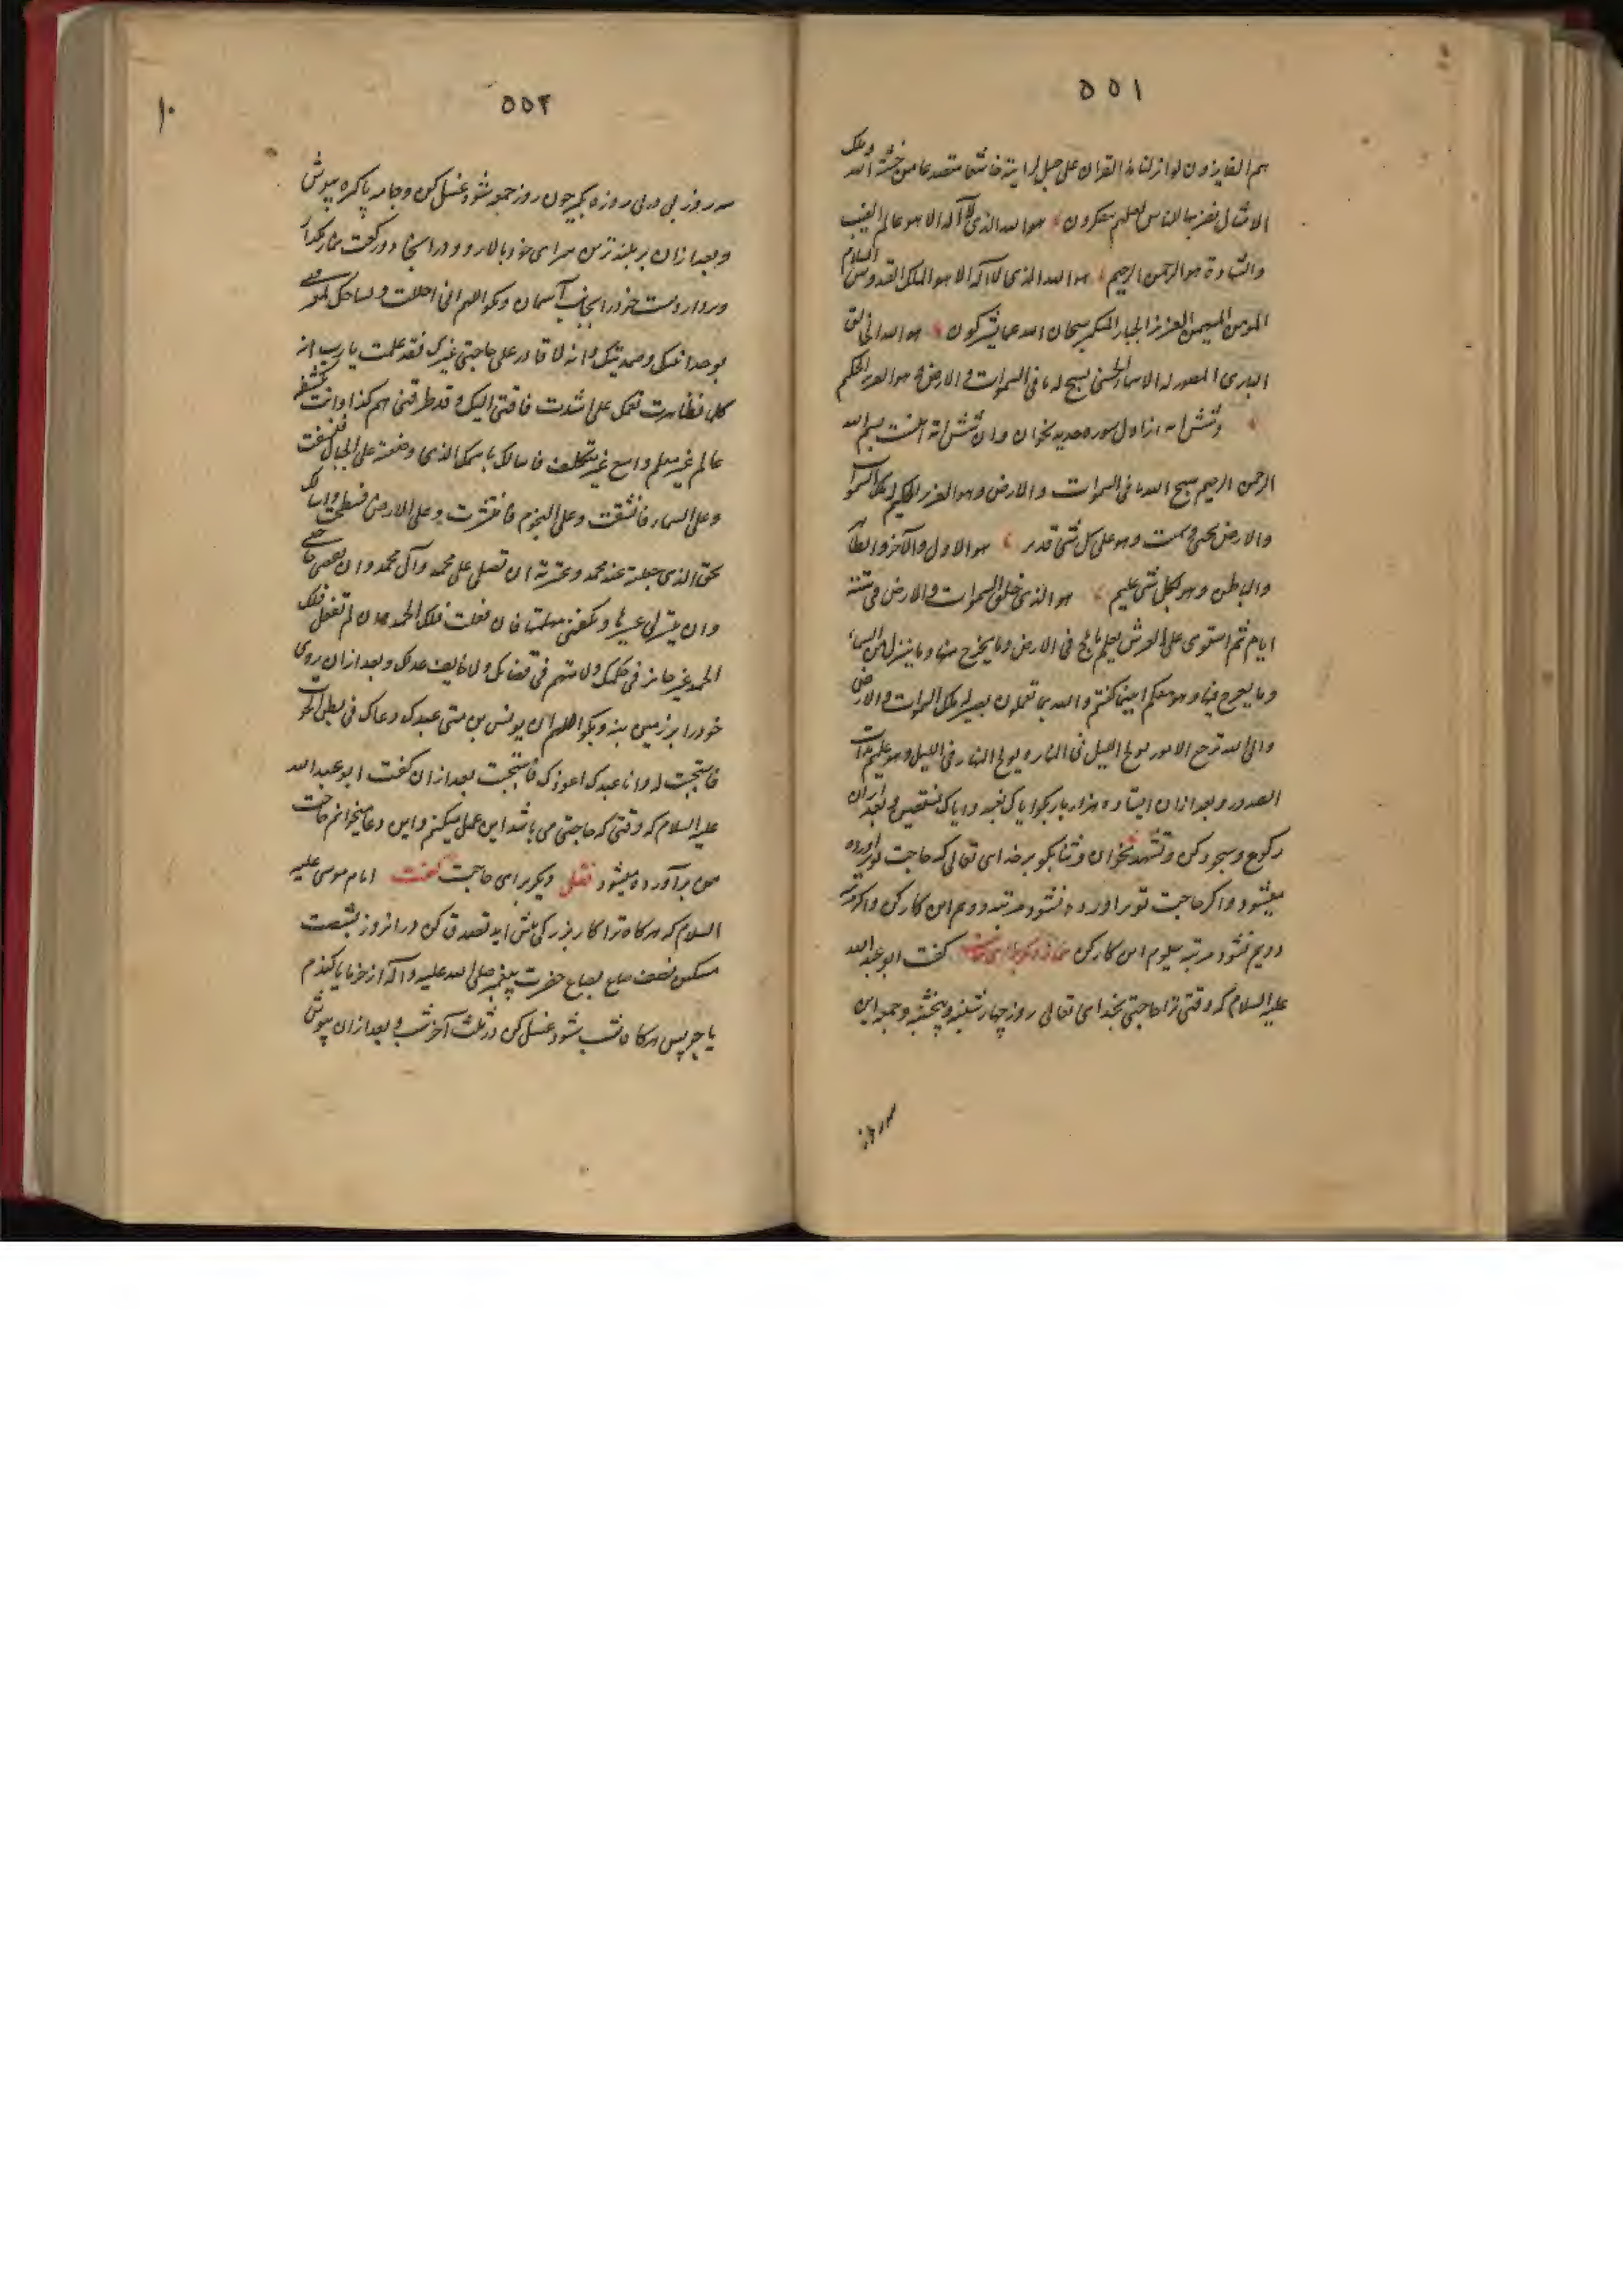 ۵۵۱
هم الفایزون لو انزلنا هذا القران علی جبل لرایته خاشعا متصدعا من خشیة الله وتلک
الامثال نضربها للناس لعلهم یتفکرون هو الله الذی لا اله الا هو عالم الغیب
والشهادة هو الرحمن الرحیم هو الله الذی لا اله الا هو الملک القدوس السلام
المومن المهیمن العزیز الجبار المتکبر سبحان الله عما یشرکون هو الله الخالق
الباری المصور له الاسماء الحسنی یسبح له ما فی السموات و الارض و هو العزیز الحکیم
وشش ایه از اول سوره حدید بخوان وان شش ایه اینست بسم الله
الرحمن الرحیم سبح لله ما فی السموات والارض وهو العزیز الحکیم له ملک السموات
والارض یحیی و یمیت وهو علی کل شی قدیر هو الاول والآخر والظاهر
والباطن وهو بکل شی علیم هو الذی خلق السموات والارض فی ستة
ایام ثم استوی علی العرش یعلم ما یلج فی الارض وما یخرج منها وما ینزل من السماء
وما یعرج فیها وهو معکم اینما کنتم والله بما تعملون بصیر له ملک السموات والارض
والی الله ترجع الامور یولج اللیل فی النهار و یولج النهار فی اللیل وهو علیم بذات
الصدور وبعد ازان ایستاده هزار بار بکو ایاک نعبد وایاک نستعین و بعد ازان
رکوع وسجود کن وتشهد بخوان وثنا بکو بر خدای تعالی که حاجت تو براورده
میشود واکر حاجت تو براورده نشود مرتبه دوم این کار کن واکر مرتبه
دویم نشود مرتبه سیوم این کار کن نماز دیکر برای حاجت کفت ابو عبدالله
علیه السلام که وقتی ترا حاجتی بخدای تعالی روز چهارشنبه و پنجشنبه و جمعه این
۵۵۲
سه روز پی در پی روزه بکیر چون روز جمعه شود غسل کن وجامه پاکیزه بپوش
وبعد ازان بر بلندترین سرای خود بالا رو ودر اینجا دو رکعت نماز بکذار
وبردار دست خود را بجانب آسمان وبکو اللهم انی احللت بساحتک لمعرفتی
بوحدانیتک وصمدیتک وانه لا قادر علی حاجتی غیرک فقد علمت یارب انه
کلما تظاهرت نعمک علی اشتدت فاقتی الیک وقد طرقنی هم کذا وانت بکشفه
عالم غیر معلم واسع غیر متکلف فاسالک باسمک الذی وضعته علی الجبال فنسفت
وعلی السماء فانشقت وعلی النجوم فانتثرت وعلی الارض فسطحت واسالک
بحق الذی جعلته عند محمد وعترته ان تصلی علی محمد وآل محمد وان تقضی حاجتی
وان تیسر لی عسیرها وتکفنی مهمتها فان فعلت فلک الحمد وان لم تفعل فلک
الحمد غیر جایز فی حکمک ولا متهم فی قضائک ولا حایف عدلک وبعد ازان روی
خود را بر زمین بنه وبکو اللهم ان یونس بن متی عبدک دعاک فی بطن الحوت
فاستجبت له وانا عبدک ادعوک فاستجب بعد ازان کفت ابو عبدالله
علیه السلام که وقتی که حاجتی می باشد این عمل میکنم واین دعا میخوانم حاجت
من برآورده میشود نقلی دیکر برای حاجت کفت امام موسی علیه
السلام که هرکاه ترا کار بزرکی پیش اید تصدق کن در انروز بشصت
مسکین نصف صاع بصاع حضرت پیغمبر صلی الله علیه واله از خرما یا کندم
یا جو پس هرکاه شب شود غسل کن در ثلث آخر شب و بعد ازان بپوش